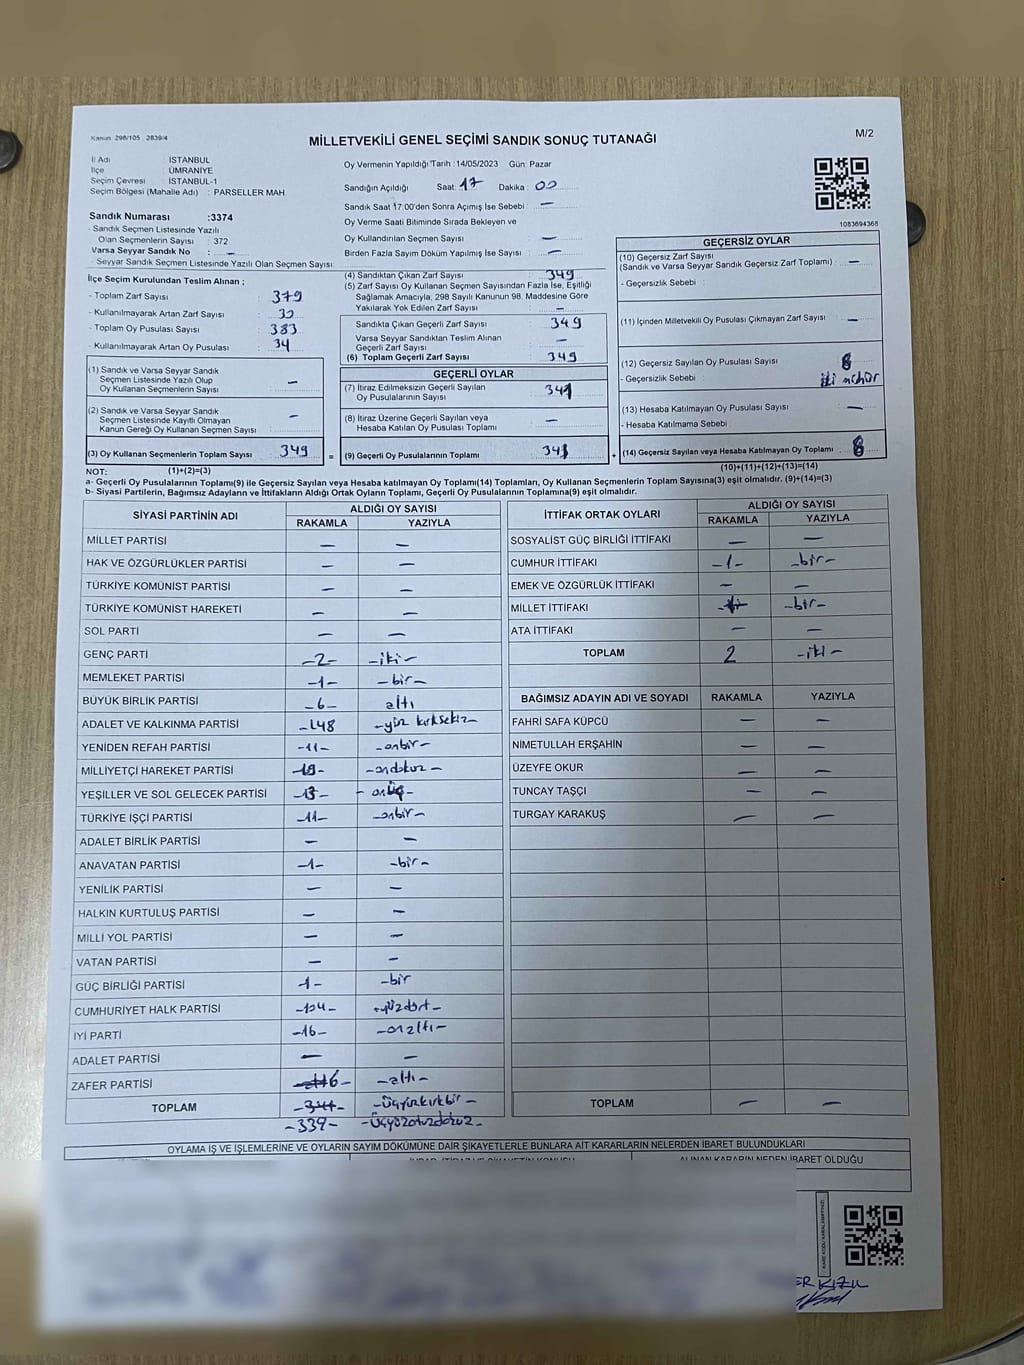 Kanun: 298/105 , 2839/4
MİLLETVEKİLİ GENEL SEÇİMİ SANDIK SONUÇ TUTANAĞI
M/2
İl Adı İSTANBUL
İlçe ÜMRANİYE
Seçim Çevresi İSTANBUL-1
Seçim Bölgesi (Mahalle Adı) : PARSELLER MAH
Sandık Numarası :3374
- Sandık Seçmen Listesinde Yazılı
Olan Seçmenlerin Sayısı : 372
Varsa Seyyar Sandık No : —
- Seyyar Sandık Seçmen Listesinde Yazılı Olan Seçmen Sayısı:
İlçe Seçim Kurulundan Teslim Alınan ;
- Toplam Zarf Sayısı : 379
- Kullanılmayarak Artan Zarf Sayısı : 30
- Toplam Oy Pusulası Sayısı : 383
- Kullanılmayarak Artan Oy Pusulası : 34
(1) Sandık ve Varsa Seyyar Sandık
Seçmen Listesinde Yazılı Olup
Oy Kullanan Seçmenlerin Sayısı —
(2) Sandık ve Varsa Seyyar Sandık
Seçmen Listesinde Kayıtlı Olmayan
Kanun Gereği Oy Kullanan Seçmen Sayısı —
(3) Oy Kullanan Seçmenlerin Toplam Sayısı 349
Oy Vermenin Yapıldığı Tarih :14/05/2023 Gün: Pazar
Sandığın Açıldığı Saat: 17 Dakika : 00
Sandık Saat 17:00'den Sonra Açılmış İse Sebebi : —
Oy Verme Saati Bitiminde Sırada Bekleyen ve
Oy Kullandırılan Seçmen Sayısı : —
Birden Fazla Sayım Döküm Yapılmış İse Sayısı : —
(4) Sandıktan Çıkan Zarf Sayısı : 349
(5) Zarf Sayısı Oy Kullanan Seçmen Sayısından Fazla İse, Eşitliği
Sağlamak Amacıyla, 298 Sayılı Kanunun 98. Maddesine Göre
Yakılarak Yok Edilen Zarf Sayısı : —
Sandıkta Çıkan Geçerli Zarf Sayısı : 349
Varsa Seyyar Sandıktan Teslim Alınan
Geçerli Zarf Sayısı : —
(6) Toplam Geçerli Zarf Sayısı : 349
GEÇERLİ OYLAR
(7) İtiraz Edilmeksizin Geçerli Sayılan
Oy Pusulalarının Sayısı : 341
(8) İtiraz Üzerine Geçerli Sayılan veya
Hesaba Katılan Oy Pusulası Toplamı : —
= (9) Geçerli Oy Pusulalarının Toplamı : 341
1083694368
GEÇERSİZ OYLAR
(10) Geçersiz Zarf Sayısı
(Sandık ve Varsa Seyyar Sandık Geçersiz Zarf Toplamı) : —
- Geçersizlik Sebebi :
(11) İçinden Milletvekili Oy Pusulası Çıkmayan Zarf Sayısı : —
(12) Geçersiz Sayılan Oy Pusulası Sayısı : 8
- Geçersizlik Sebebi : iki mühür
(13) Hesaba Katılmayan Oy Pusulası Sayısı : —
- Hesaba Katılmama Sebebi
+ (14) Geçersiz Sayılan veya Hesaba Katılmayan Oy Toplamı : 8
NOT: (1)+(2)=(3)
(10)+(11)+(12)+(13)=(14)
a- Geçerli Oy Pusulalarının Toplamı(9) ile Geçersiz Sayılan veya Hesaba Katılmayan Oy Toplamı(14) Toplamları, Oy Kullanan Seçmenlerin Toplam Sayısına(3) eşit olmalıdır. (9)+(14)=(3)
b- Siyasi Partilerin, Bağımsız Adayların ve İttifakların Aldığı Ortak Oyların Toplamı, Geçerli Oy Pusulalarının Toplamına(9) eşit olmalıdır.
SİYASİ PARTİNİN ADI ALDIĞI OY SAYISI
RAKAMLA YAZIYLA
MİLLET PARTİSİ — —
HAK VE ÖZGÜRLÜKLER PARTİSİ — —
TÜRKİYE KOMÜNİST PARTİSİ — —
TÜRKİYE KOMÜNİST HAREKETİ — —
SOL PARTİ — —
GENÇ PARTİ -2- -iki-
MEMLEKET PARTİSİ -1- -bir-
BÜYÜK BİRLİK PARTİSİ -6- altı
ADALET VE KALKINMA PARTİSİ -148 -yüz kırksekiz-
YENİDEN REFAH PARTİSİ -11- -onbir-
MİLLİYETÇİ HAREKET PARTİSİ -19- -ondokuz-
YEŞİLLER VE SOL GELECEK PARTİSİ -13- -onüç-
TÜRKİYE İŞÇİ PARTİSİ -11- -onbir-
ADALET BİRLİK PARTİSİ — —
ANAVATAN PARTİSİ -1- -bir-
YENİLİK PARTİSİ — —
HALKIN KURTULUŞ PARTİSİ — —
MİLLİ YOL PARTİSİ — —
VATAN PARTİSİ — —
GÜÇ BİRLİĞİ PARTİSİ -1- -bir
CUMHURİYET HALK PARTİSİ -104- -yüzdört-
İYİ PARTİ -16- -onaltı-
ADALET PARTİSİ — —
ZAFER PARTİSİ 6- -altı-
TOPLAM -341- -Üçyüzkırkbir-
-339- -Üçyüzotuzdokuz-
İTTİFAK ORTAK OYLARI ALDIĞI OY SAYISI
RAKAMLA YAZIYLA
SOSYALİST GÜÇ BİRLİĞİ İTTİFAKI — —
CUMHUR İTTİFAKI -1- -bir-
EMEK VE ÖZGÜRLÜK İTTİFAKI — —
MİLLET İTTİFAKI -bir-
ATA İTTİFAKI — —
TOPLAM 2 -iki-
BAĞIMSIZ ADAYIN ADI VE SOYADI RAKAMLA YAZIYLA
FAHRİ SAFA KÜPCÜ — —
NİMETULLAH ERŞAHİN — —
ÜZEYFE OKUR — —
TUNCAY TAŞÇI — —
TURGAY KARAKUŞ — —
TOPLAM — —
OYLAMA İŞ VE İŞLEMLERİNE VE OYLARIN SAYIM DÖKÜMÜNE DAİR ŞİKAYETLERLE BUNLARA AİT KARARLARIN NELERDEN İBARET BULUNDUKLARI
ALINAN KARARIN NEDEN İBARET OLDUĞU